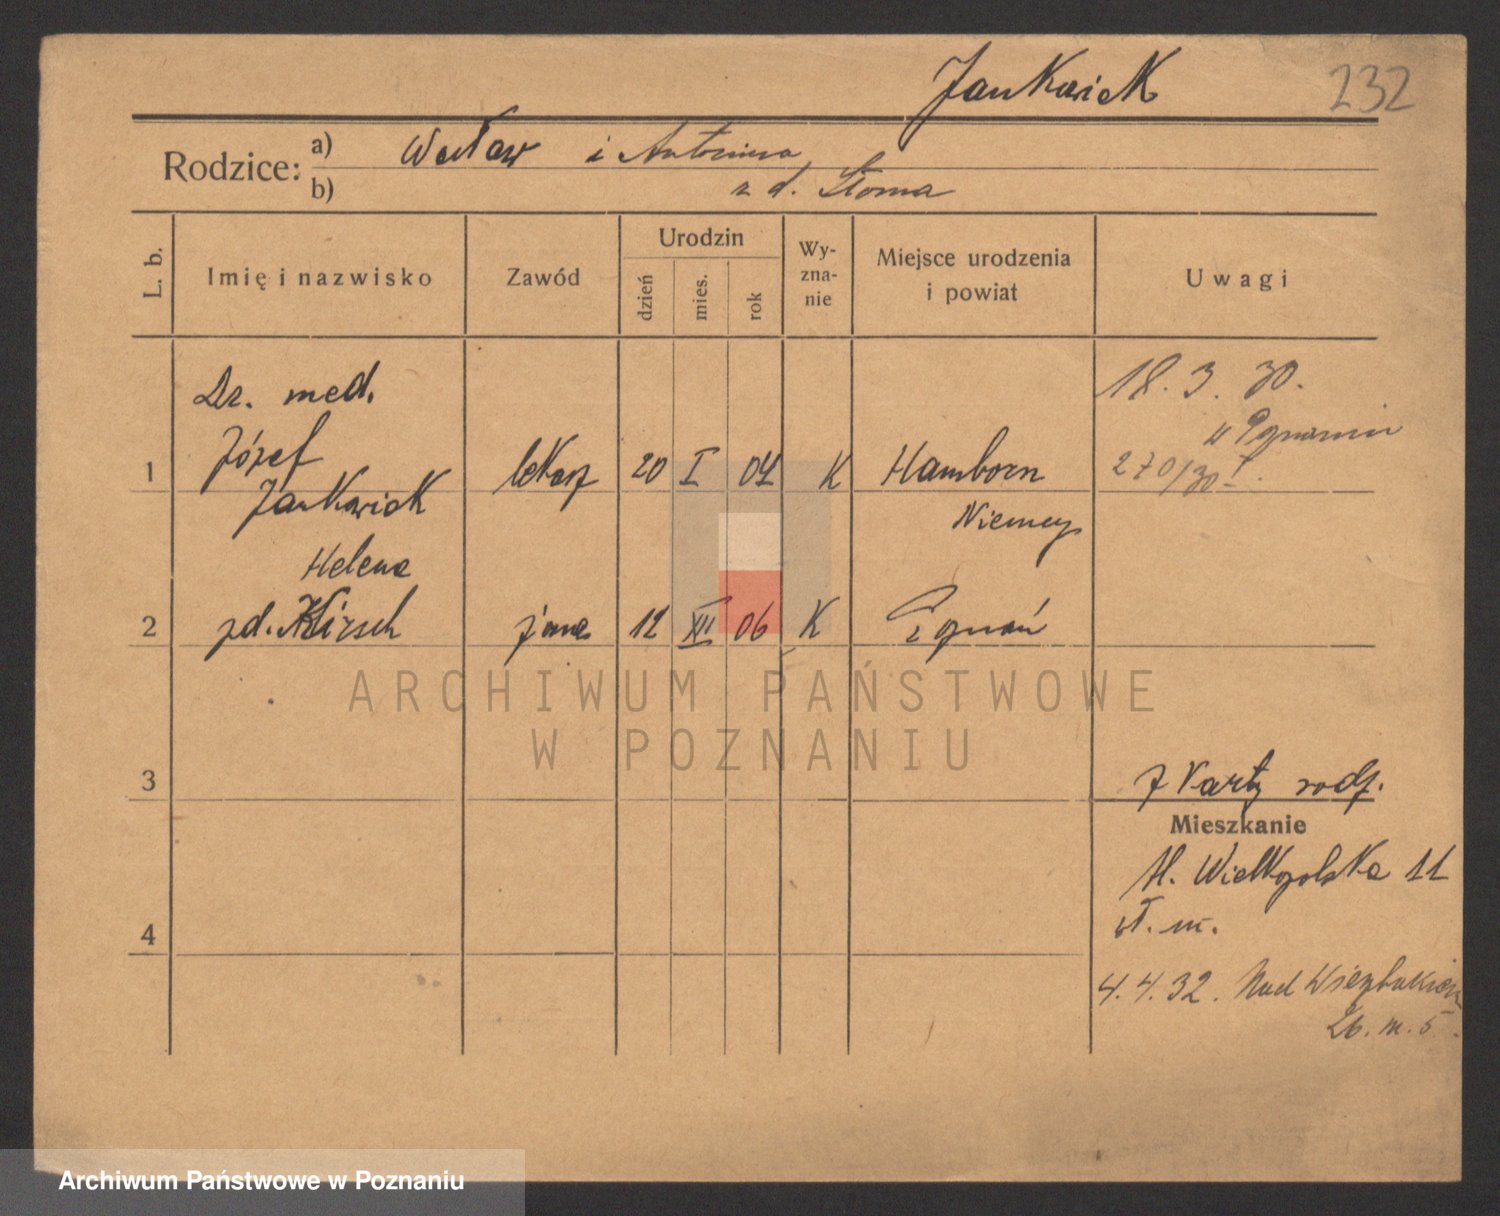 Jankowiak 232
Rodzice: a) Wacław i Antonina
b) z d. Słoma
L. b. Imię i nazwisko Zawód Urodzin dzień mies. rok Wy-zna-nie Miejsce urodzenia i powiat Uwagi
Dr. med. 18. 3. 30.
Józef w Poznaniu
1 lekarz 20 I 04 K Hamborn 270/30
Jankowiak Niemcy
Helena
2 zd. Kirsch żona 12 XII 06 K Poznań
ARCHIWUM PAŃSTWOWE
W POZNANIU
3 z karty rodz.
Mieszkanie
Al. Wielkopolska 11
4 wł. m.
4. 4. 32. Nad Wierzbakiem
26. m. 5.
Archiwum Państwowe w Poznaniu